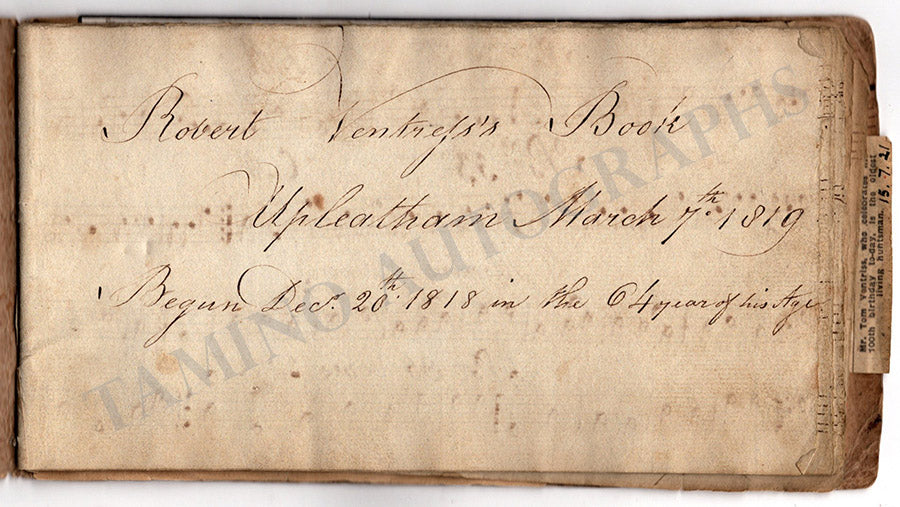 Robert Ventress's Book
Upleatham March 7th. 1819
Begun Decr. 20th. 1818 in the 64 year of his Age
TAMINO AUTOGRAPHS
Mr. Tom Ventriss, who celebrates
100th birthday to-day, is the oldest
living huntsman. 15.7.21